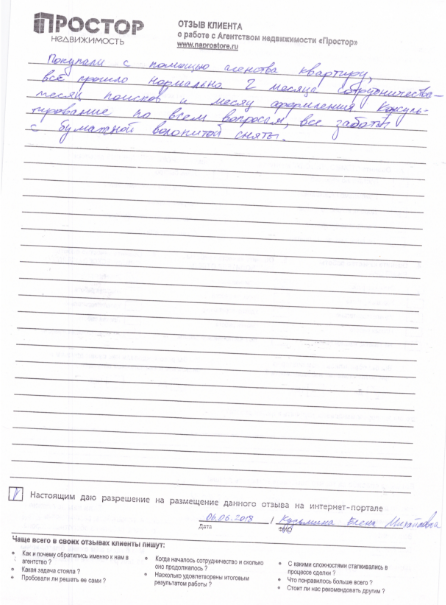 ПРОСТОР
НЕДВИЖИМОСТЬ
ОТЗЫВ КЛИЕНТА
о работе с Агентством недвижимости «Простор»
www.naprostore.ru
Покупали с помощью агенства квартиру,
всё прошло нормально 2 месяца сотрудничества-
месяц поисков и месяц оформления Консуль-
тирование по всем вопросам, все заботы
с бумажной волокитой сняты.
Настоящим даю разрешение на размещение данного отзыва на интернет-портале
06.06.2018 /
Дата
ФИО
Чаще всего в своих отзывах клиенты пишут:
Как и почему обратились именно к нам в агентство ?
Какая задача стояла ?
Пробовали ли решать ее сами ?
Когда началось сотрудничество и сколько оно продолжилось ?
Насколько удовлетворены итоговым результатом работы ?
С какими сложностями сталкивались в процессе сделки ?
Что понравилось больше всего ?
Стоит ли нас рекомендовать другим ?